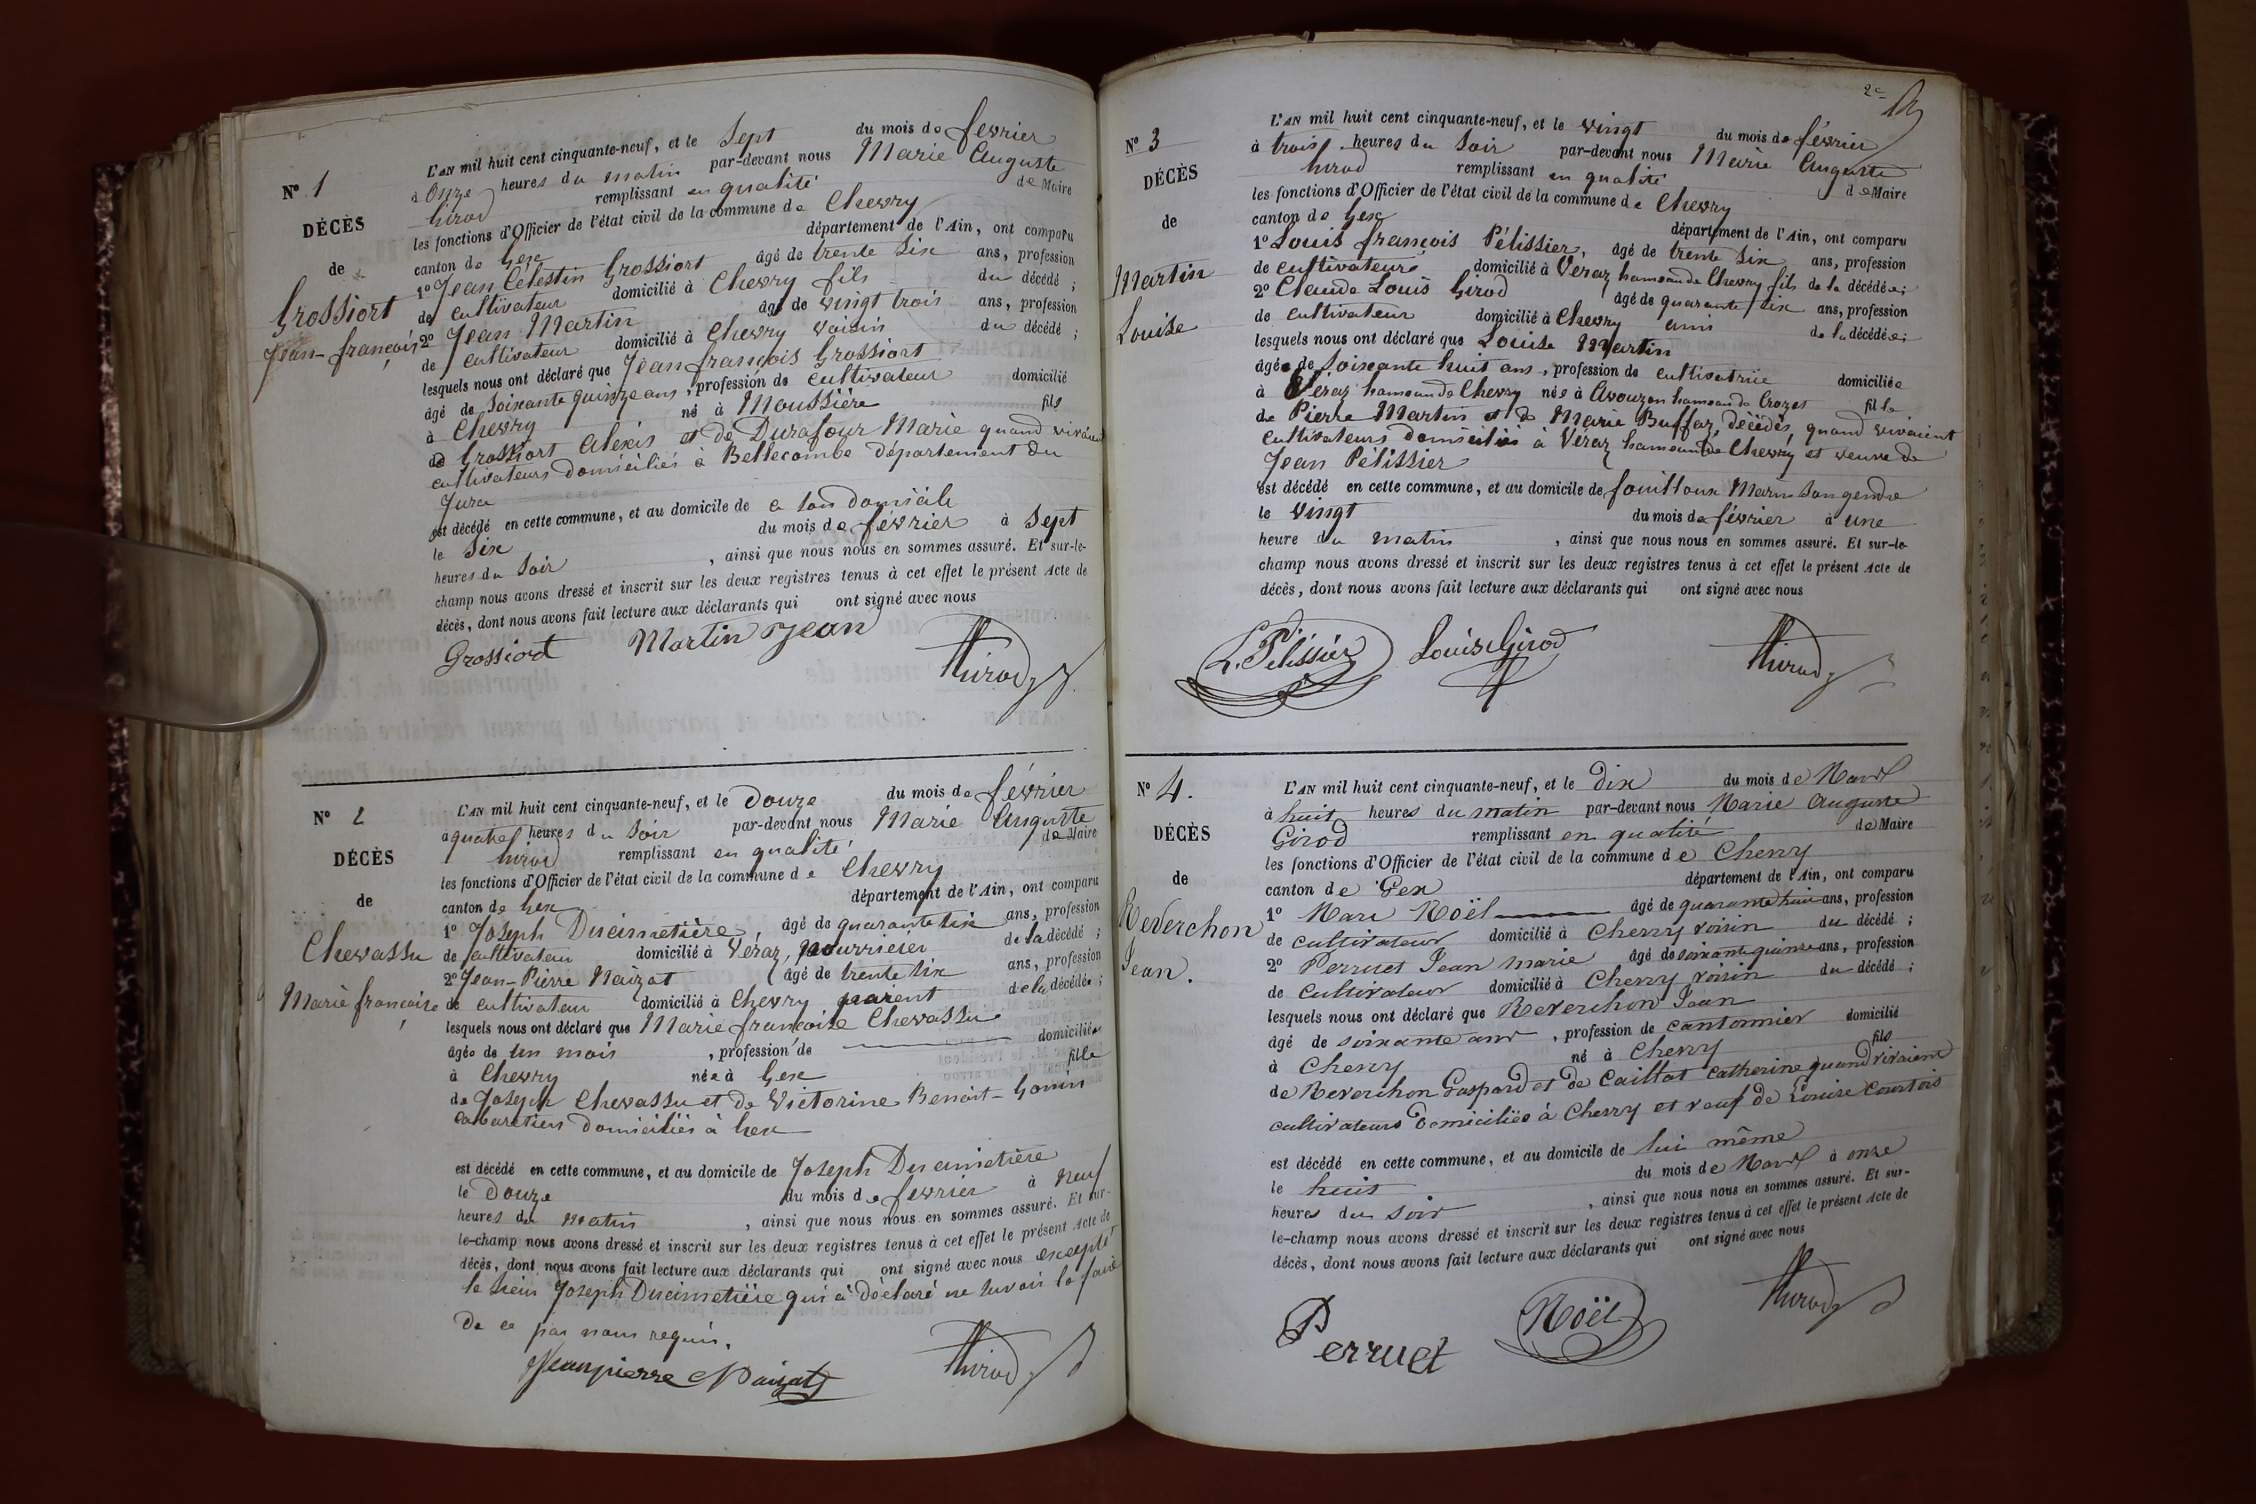 N° 1
DÉCÈS
de
Grossiort
Jean-françois
L'AN mil huit cent cinquante-neuf, et le Sept du mois de février
à Onze heures du matin par-devant nous Marie Auguste
Girod remplissant en qualité de Maire
les fonctions d'Officier de l'état civil de la commune de Chevry
canton de Gex département de l'Ain, ont comparu
1° Jean Célestin Grossiort âgé de trente Six ans, profession
de cultivateur domicilié à Chevry fils du décédé ;
2° Jean Martin âgé de vingt trois ans, profession
de cultivateur domicilié à Chevry voisin du décédé ;
lesquels nous ont déclaré que Jean françois Grossiort
âgé de Soixante quinze ans, profession de cultivateur domicilié
à Chevry né à Moussière fils
de Grossiort Alexis et de Durafour Marie quand vivaient
cultivateurs domiciliés à Bellecombe département du
Jura
est décédé en cette commune, et au domicile de a son domicile
le Six du mois de février à Sept
heures du Soir , ainsi que nous nous en sommes assuré. Et sur-le-
champ nous avons dressé et inscrit sur les deux registres tenus à cet effet le présent Acte de
décès, dont nous avons fait lecture aux déclarants qui ont signé avec nous
Grossiort Martin Jean Girod
N° 2
DÉCÈS
de
Chevassu
Marie françoise
L'AN mil huit cent cinquante-neuf, et le Douze du mois de février
à quatre heures du Soir par-devant nous Marie Auguste
Girod remplissant en qualité de Maire
les fonctions d'Officier de l'état civil de la commune de Chevry
canton de Gex département de l'Ain, ont comparu
1° Joseph Ducimetière, âgé de quarante Six ans, profession
de cultivateur domicilié à Veraz, nourricier de la décédé ;
2° Jean-Pierre Naizat âgé de trente Six ans, profession
de cultivateur domicilié à Chevry parent de la décédée ;
lesquels nous ont déclaré que Marie françoise Chevassu
âgée de un mois , profession de domiciliée
à Chevry née à Gex fille
de Joseph Chevassu et de Victorine Benoit-Gonin
Cabaretiers domiciliés à Gex
est décédé en cette commune, et au domicile de Joseph Ducimetière
le Douze du mois de février à neuf
heures du matin , ainsi que nous nous en sommes assuré. Et sur-
le-champ nous avons dressé et inscrit sur les deux registres tenus à cet effet le présent Acte de
décès, dont nous avons fait lecture aux déclarants qui ont signé avec nous excepté
le Sieur Joseph Ducimetière qui a déclaré ne savoir le faire
De ce par nous requis.
Jean pierre Naizat Girod
2e
N° 3
DÉCÈS
de
Martin
Louise
L'AN mil huit cent cinquante-neuf, et le vingt du mois de février
à trois heures du Soir par-devant nous Marie Auguste
Girod remplissant en qualité de Maire
les fonctions d'Officier de l'état civil de la commune de Chevry
canton de Gex département de l'Ain, ont comparu
1° Louis françois Pélissier, âgé de trente Six ans, profession
de cultivateur domicilié à Véraz hameau de Chevry fils de la décédée ;
2° Claude Louis Girod âgé de quarante Six ans, profession
de cultivateur domicilié à Chevry ami de la décédée ;
lesquels nous ont déclaré que Louise Martin
âgée de Soixante huit ans, profession de cultivatrice domiciliée
à Véraz hameau de Chevry née à Avouzon hameau de Crozet fille
de Pierre Martin et de Marie Buffaz, décédés, quand vivaient
Cultivateurs domiciliés à Véraz hameau de Chevry et veuve de
Jean Pélissier
est décédé en cette commune, et au domicile de fouilloux Marin Son gendre
le vingt du mois de février à une
heure du matin , ainsi que nous nous en sommes assuré. Et sur-le-
champ nous avons dressé et inscrit sur les deux registres tenus à cet effet le présent Acte de
décès, dont nous avons fait lecture aux déclarants qui ont signé avec nous
L. Pélissier Louis Girod Girod
N° 4.
DÉCÈS
de
Reverchon
Jean.
L'AN mil huit cent cinquante-neuf, et le Dix du mois de Mars
à huit heures du matin par-devant nous Marie Auguste
Girod remplissant en qualité de Maire
les fonctions d'Officier de l'état civil de la commune de Chevry
canton de Gex département de l'Ain, ont comparu
1° Marc Noël âgé de quarante huit ans, profession
de cultivateur domicilié à Chevry voisin du décédé ;
2° Perruet Jean marie âgé de soixante quinze ans, profession
de cultivateur domicilié à Chevry voisin du décédé ;
lesquels nous ont déclaré que Reverchon Jean
âgé de soixante ans , profession de cantonnier domicilié
à Chevry né à Chevry fils
de Reverchon Gaspard et de Caillat catherine quand vivaient
cultivateurs domiciliés à Chevry et veuf de Louise Courtois
est décédé en cette commune, et au domicile de lui même
le huit du mois de Mars à onze
heures du soir , ainsi que nous nous en sommes assuré. Et sur-
le-champ nous avons dressé et inscrit sur les deux registres tenus à cet effet le présent Acte de
décès, dont nous avons fait lecture aux déclarants qui ont signé avec nous
Perruet Noël Girod